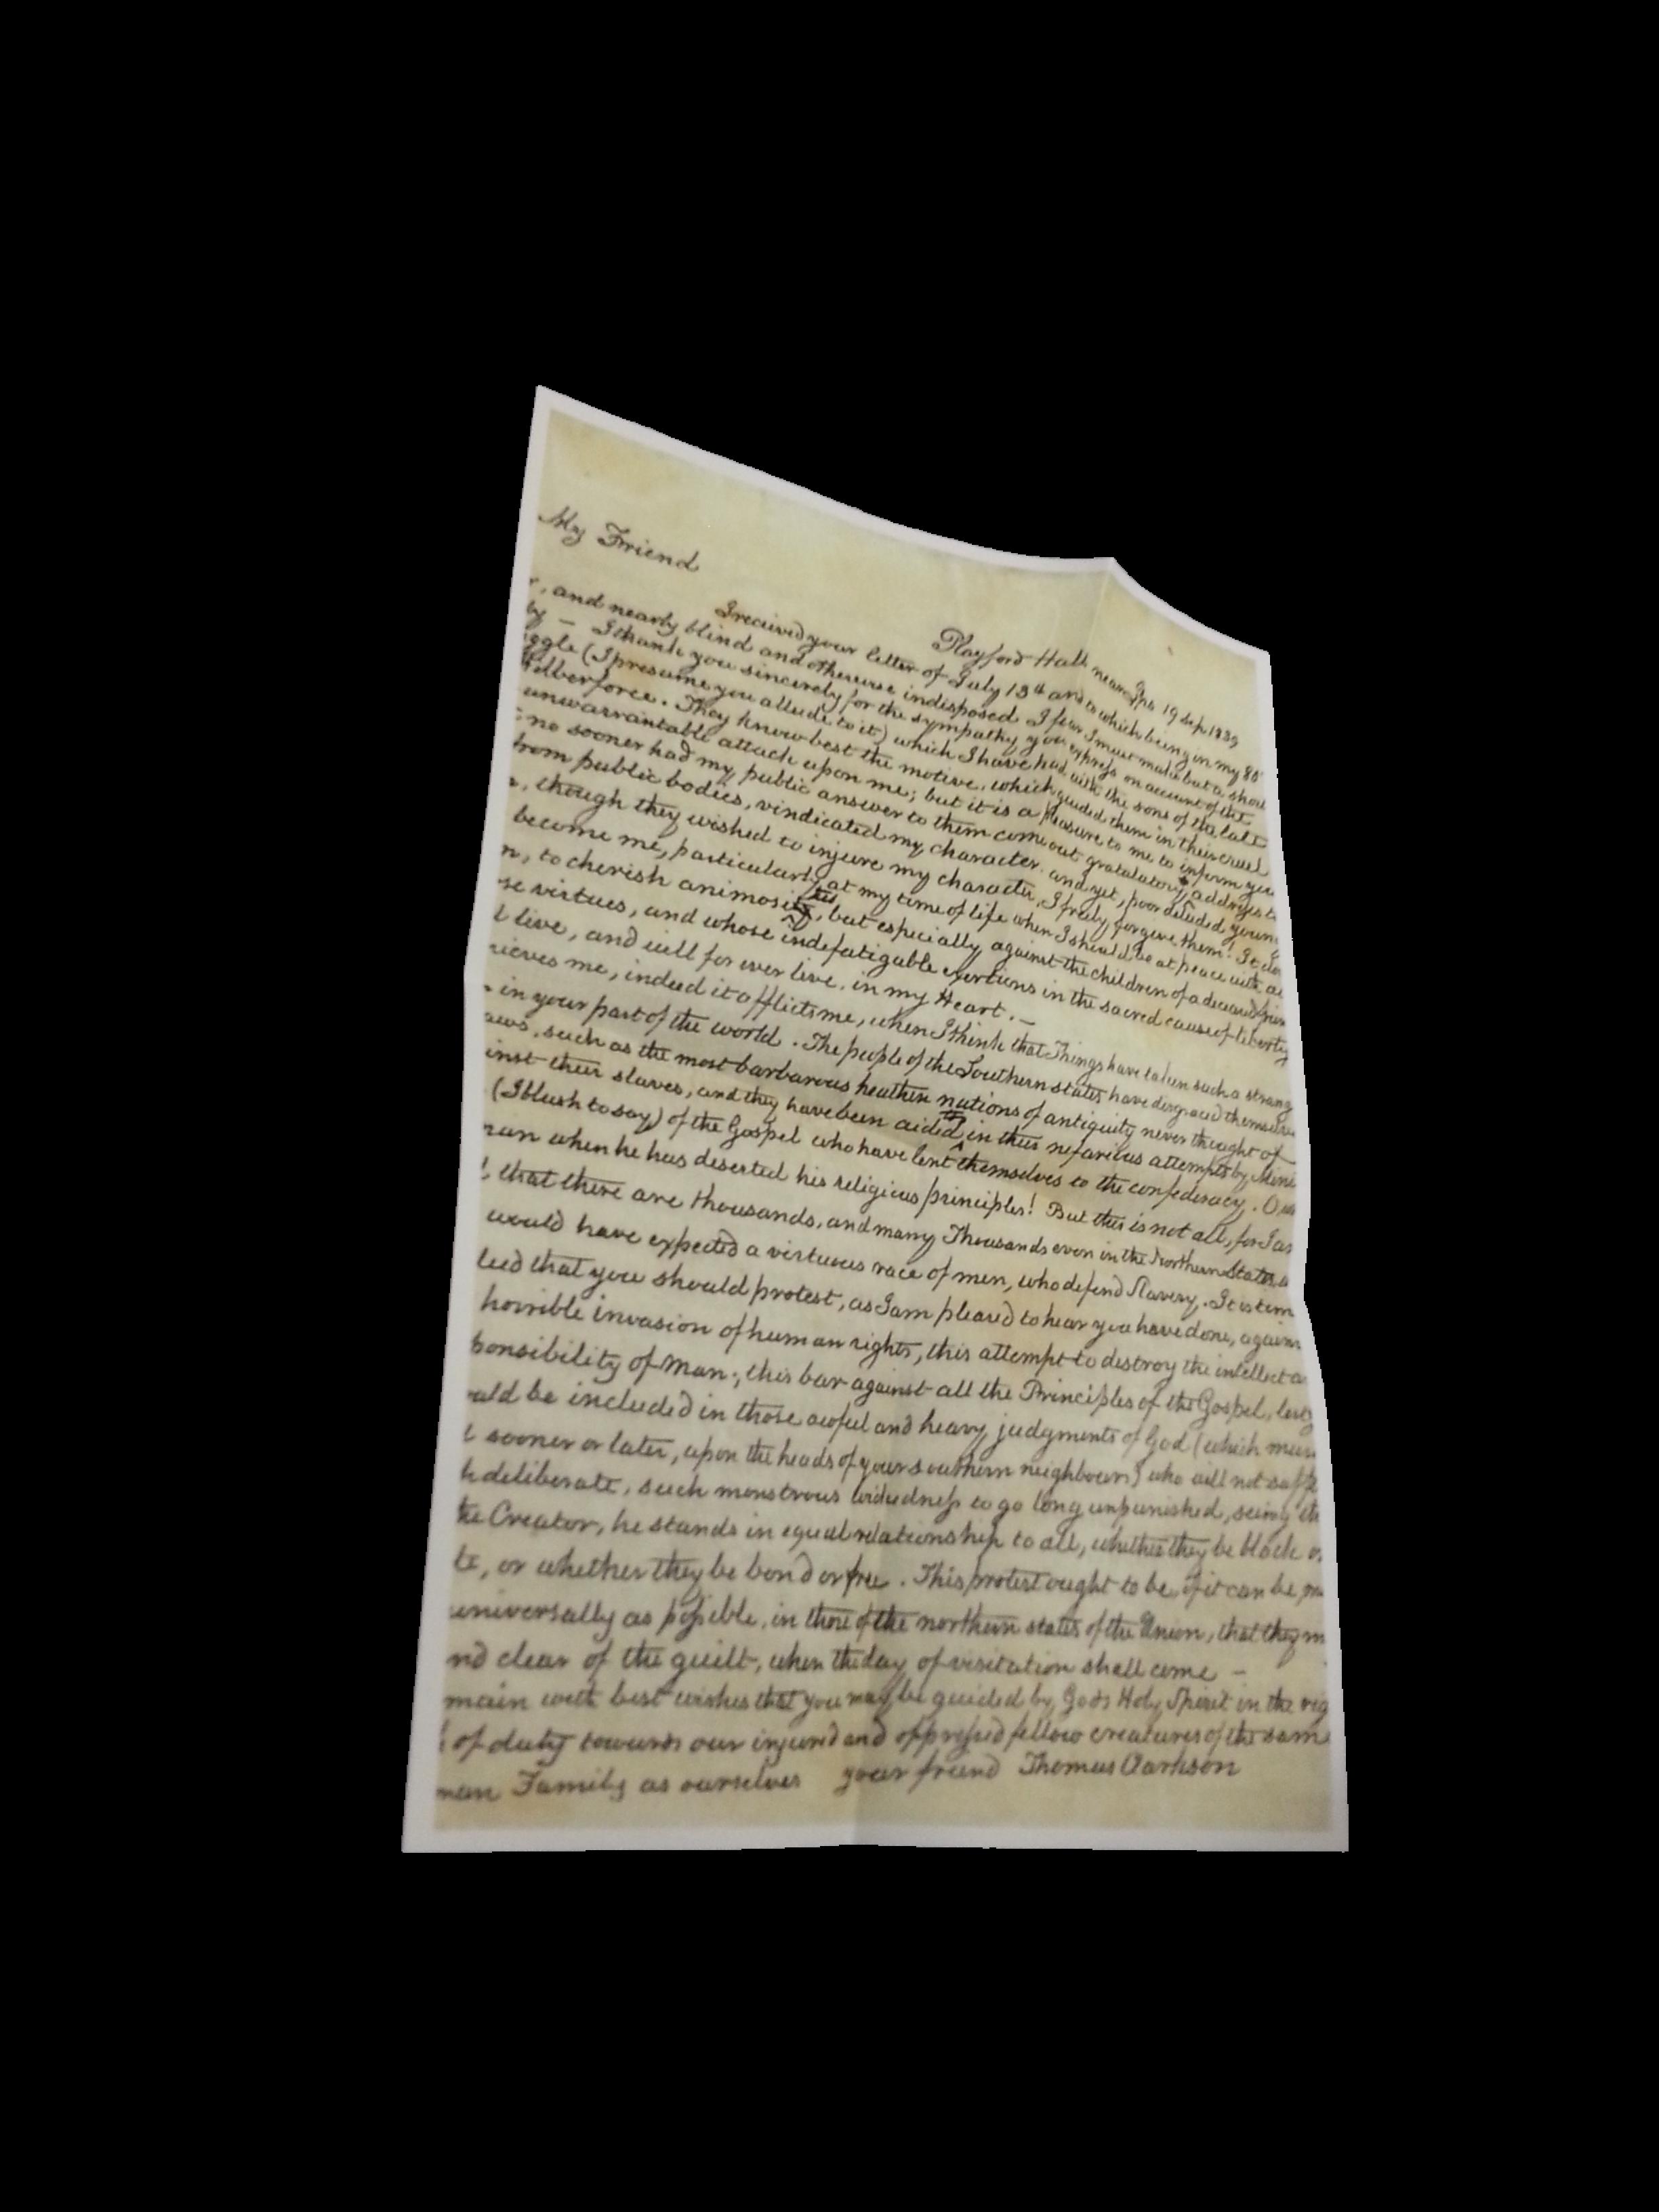 Playford Hall near Ips 19 Sep 1839
My Friend
I received your letter of July 13th and to which being in my 80
r, and nearly blind and otherwise indisposed I fear I must make but a shor
ly — I thank you sincerely for the sympathy you express on account of the
uggle (I presume you allude to it) which I have had with the sons of the late
Wilberforce. They know best the motive, which guided them in their cruel
unwarrantable attack upon me; but it is a pleasure to me to inform you
no sooner had my public answer to them come out gratulatory addresses
from public bodies, vindicated my character. and yet, poor deluded youn
, though they wished to injure my character, I freely forgive them! It do
become me, particularly at my time of life when I should be at peace with
n, to cherish animosities, but especially against the children of a deceased frien
se virtues, and whose indefatigable exertions in the sacred cause of liberty
l live, and will for ever live, in my Heart. —
rieves me, indeed it afflicts me, when I think that Things have taken such a strang
in your part of the world. The people of the Southern states have disgraced themselve
aws, such as the most barbarous heathen nations of antiquity never thought of
inst their slaves, and they have been aided in their nefarious attempts by Mini
(I blush to say) of the Gospel who have lent themselves to the confederacy.
man when he has deserted his religious principles! But this is not all, for I
, that there are thousands, and many Thousands even in the Northern States
would have expected a virtuous race of men, who defend Slavery. It is tim
led that you should protest, as I am pleased to hear you have done, agains
horrible invasion of human rights, this attempt to destroy the intellect a
ponsibility of Man; this bar against all the Principles of the Gospel, lest
uld be included in those awful and heavy judgments of God (which mus
l sooner or later, upon the heads of your southern neighbours) who will not suffe
h deliberate, such monstrous wickedness to go long unpunished, seeing th
the Creator, he stands in equal relationship to all, whether they be black o
te, or whether they be bond or free. This protest ought to be, if it can be, m
universally as possible, in those of the northern states of the Union, that they m
nd clear of the guilt, when the day of visitation shall come —
main with best wishes that you may be guided by God's Holy Spirit in the rig
of duty towards our injured and oppressed fellow creatures of the same
man Family as ourselves your friend Thomas Clarkson